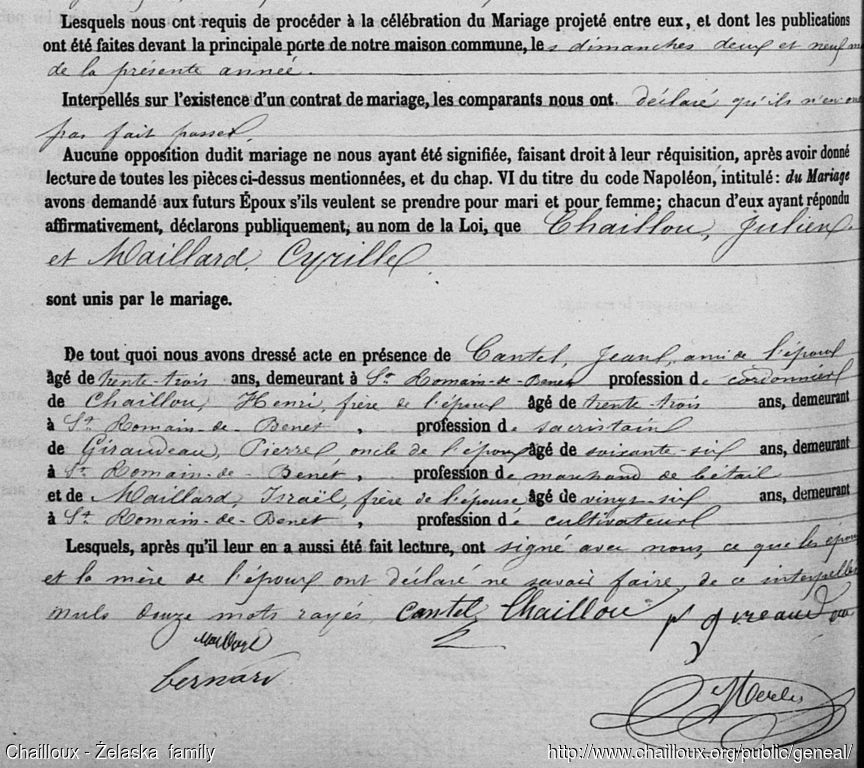 Lesquels nous ont requis de procéder à la célébration du Mariage projeté entre eux, et dont les publications
ont été faites devant la principale porte de notre maison commune, les dimanches deux et neuf
de la présente année.
Interpellés sur l'existence d'un contrat de mariage, les comparants nous ont déclaré qu'ils n'en ont
pas fait passer.
Aucune opposition dudit mariage ne nous ayant été signifiée, faisant droit à leur réquisition, après avoir donné
lecture de toutes les pièces ci-dessus mentionnées, et du chap. VI du titre du code Napoléon, intitulé : du Mariage
avons demandé aux futurs Époux s'ils veulent se prendre pour mari et pour femme ; chacun d'eux ayant répondu
affirmativement, déclarons publiquement, au nom de la Loi, que Chaillou, Julien
et Maillard, Cyrille
sont unis par le mariage.
De tout quoi nous avons dressé acte en présence de Cantel, Jean, ami de l'époux
âgé de trente-trois ans, demeurant à St Romain-de-Benet profession de cordonnier
de Chaillou, Henri, frère de l'époux âgé de trente-trois ans, demeurant
à St Romain-de-Benet, profession de sacristain
de Giraudeau, Pierre, oncle de l'époux âgé de soixante-six ans, demeurant
à St Romain-de-Benet, profession de marchand de bétail
et de Maillard, Israël, frère de l'épouse, âgé de vingt-six ans, demeurant
à St Romain-de-Benet, profession de cultivateur
Lesquels, après qu'il leur en a aussi été fait lecture, ont signé avec nous, ce que les époux
et la mère de l'époux ont déclaré ne savoir faire, de ce interpellés
nuls douze mots rayés. Cantel Chaillou
Maillard
bernard
Chailloux - Żelaska family http://www.chailloux.org/public/geneal/